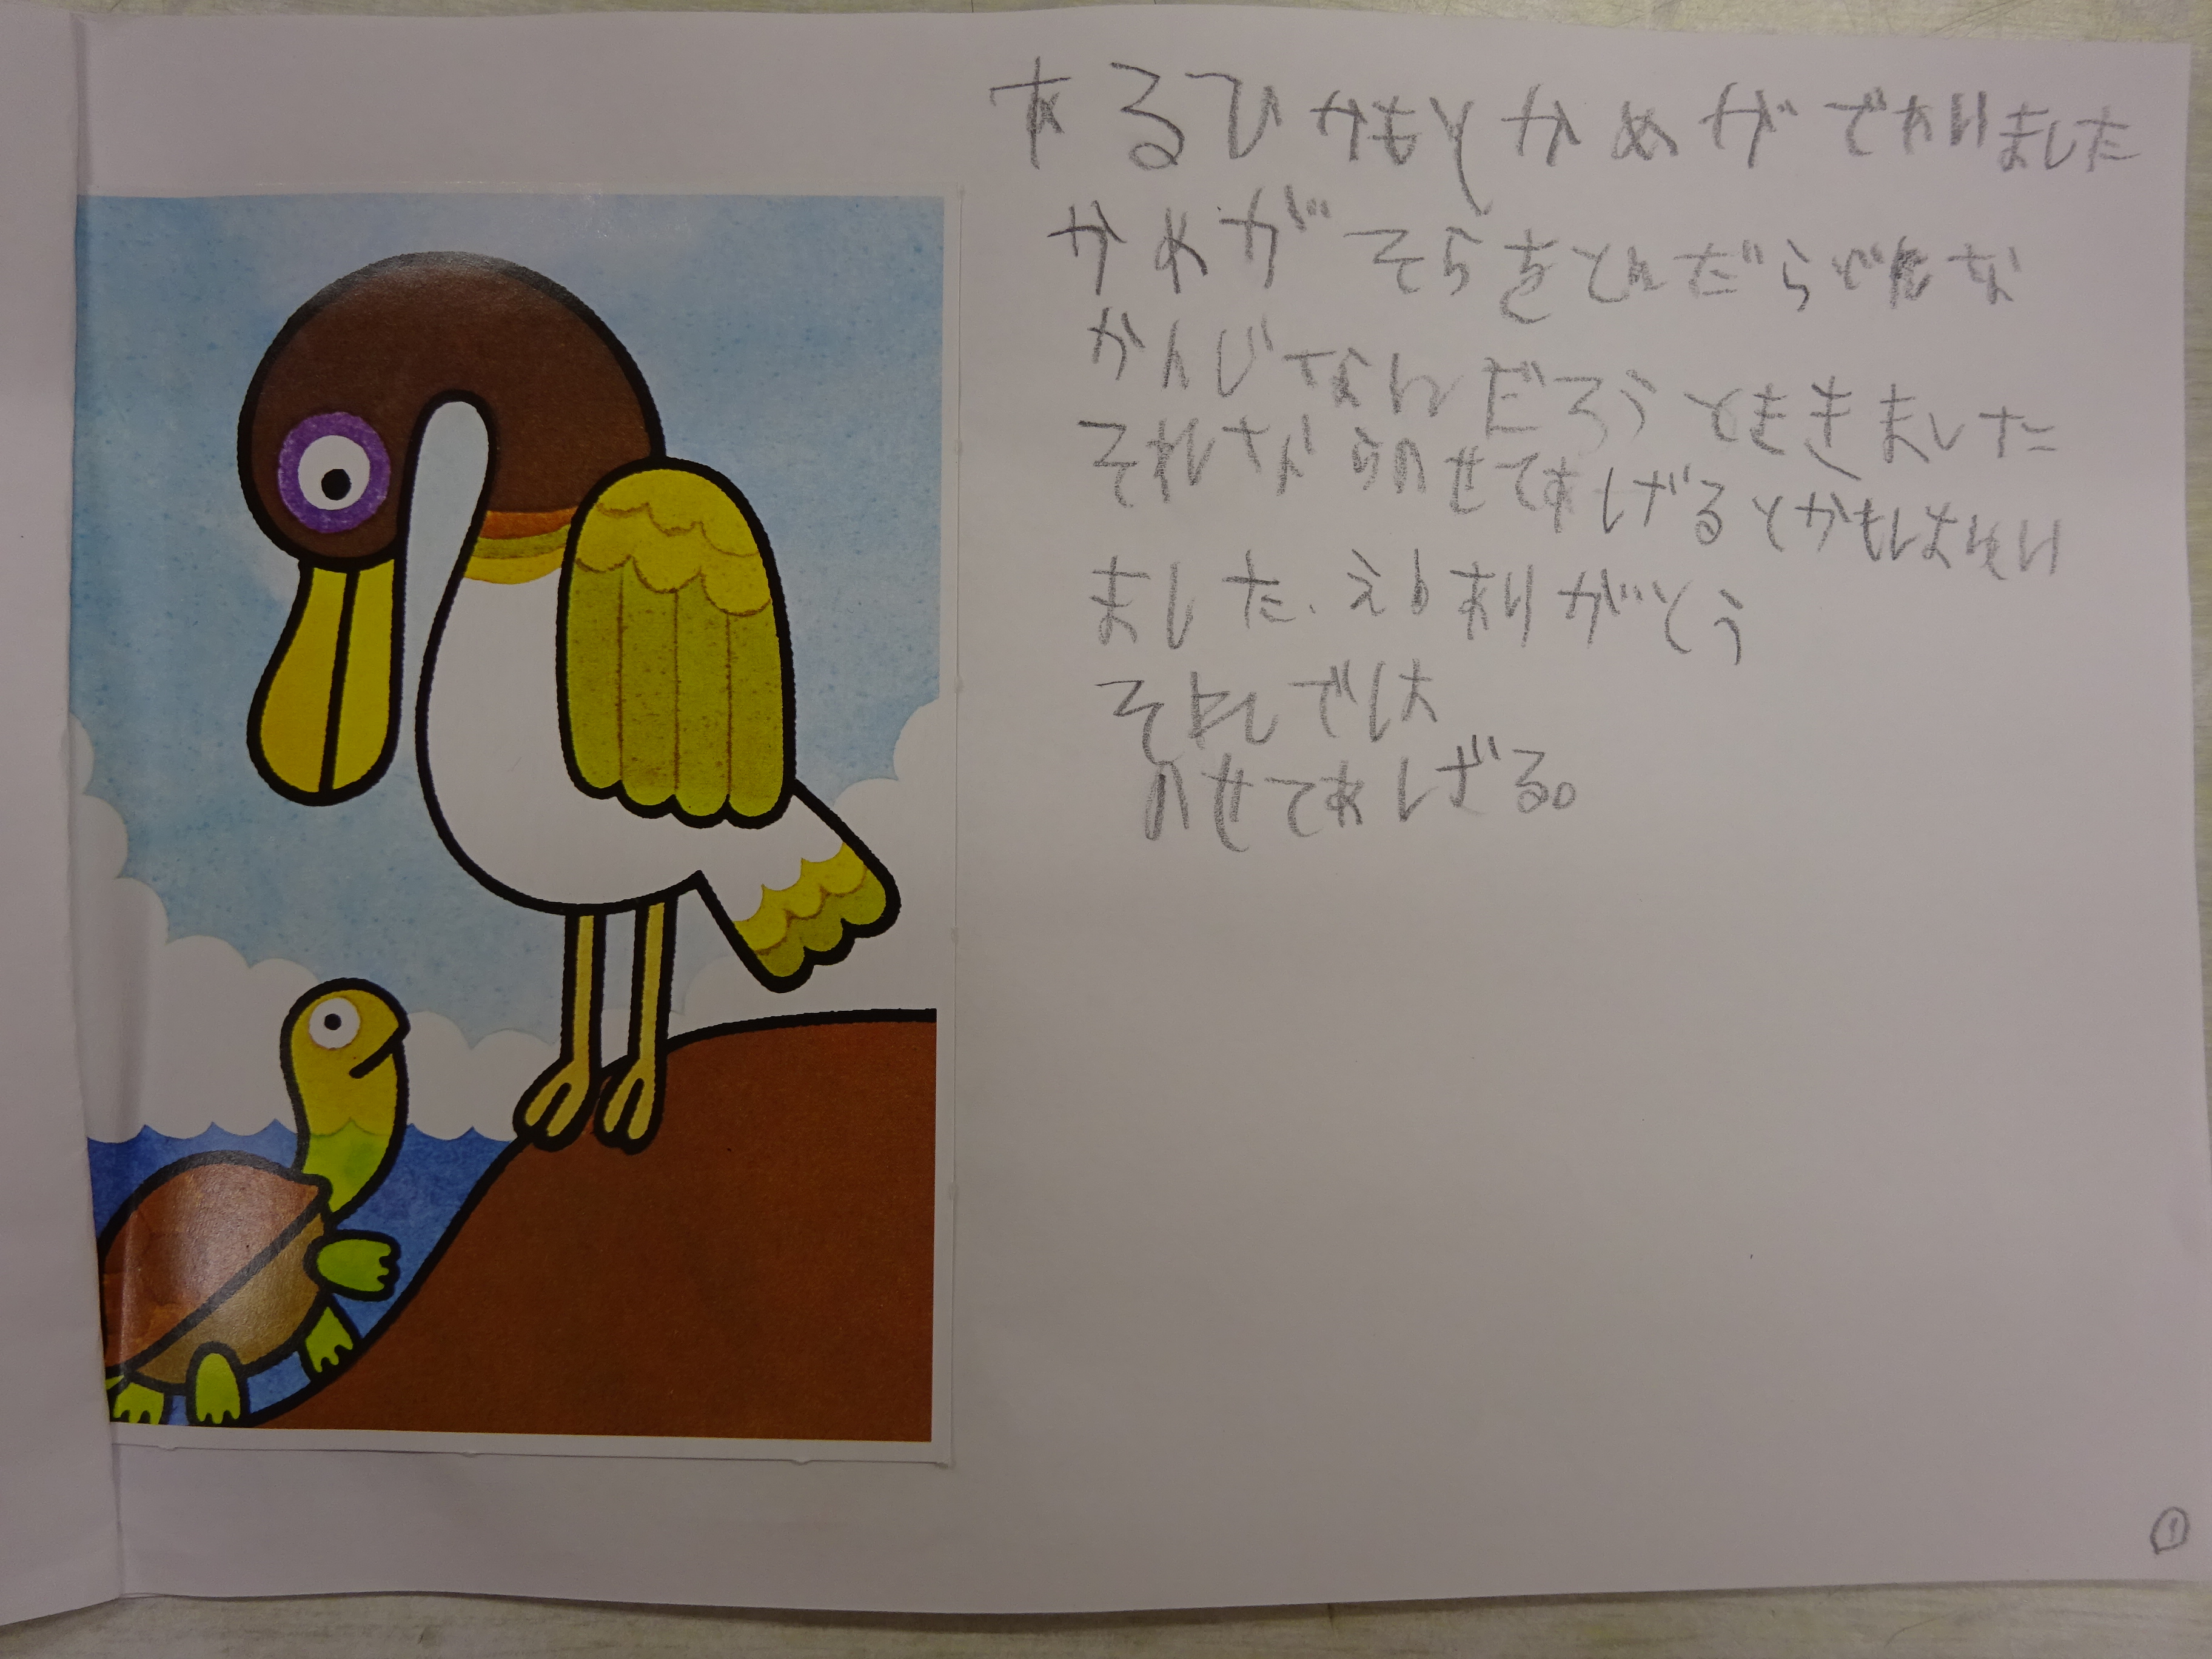 あるひかもとかめがであいました
かめがそらをとんだらどんな
かんじなんだろうとききました
それならのせてあげるとかもはいい
ました、えㅇありがとう
それでは
のせてあげる。
①